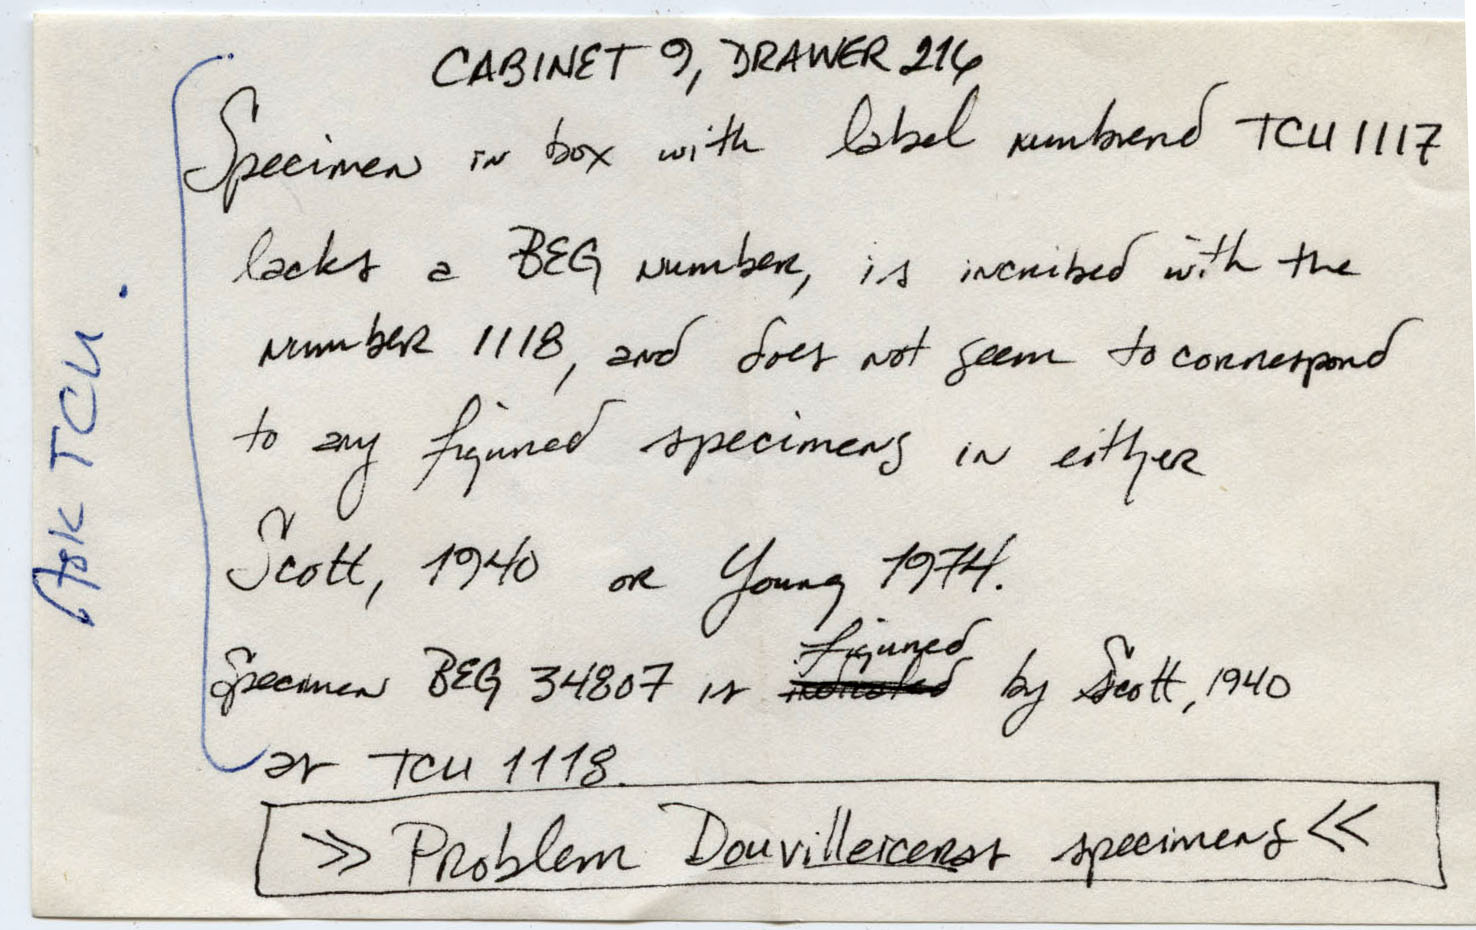 CABINET 9, DRAWER 216
Specimen in box with label numbered TCU 1117
lacks a BEG number, is incribed with the
number 1118, and does not seem to correspond
to any figured specimens in either
Scott, 1940 or Young 1974.
figured
Specimen BEG 34807 is indicated by Scott, 1940
as TCU 1118.
>> Problem Douvilleiceras specimens <<
Ask TCU.